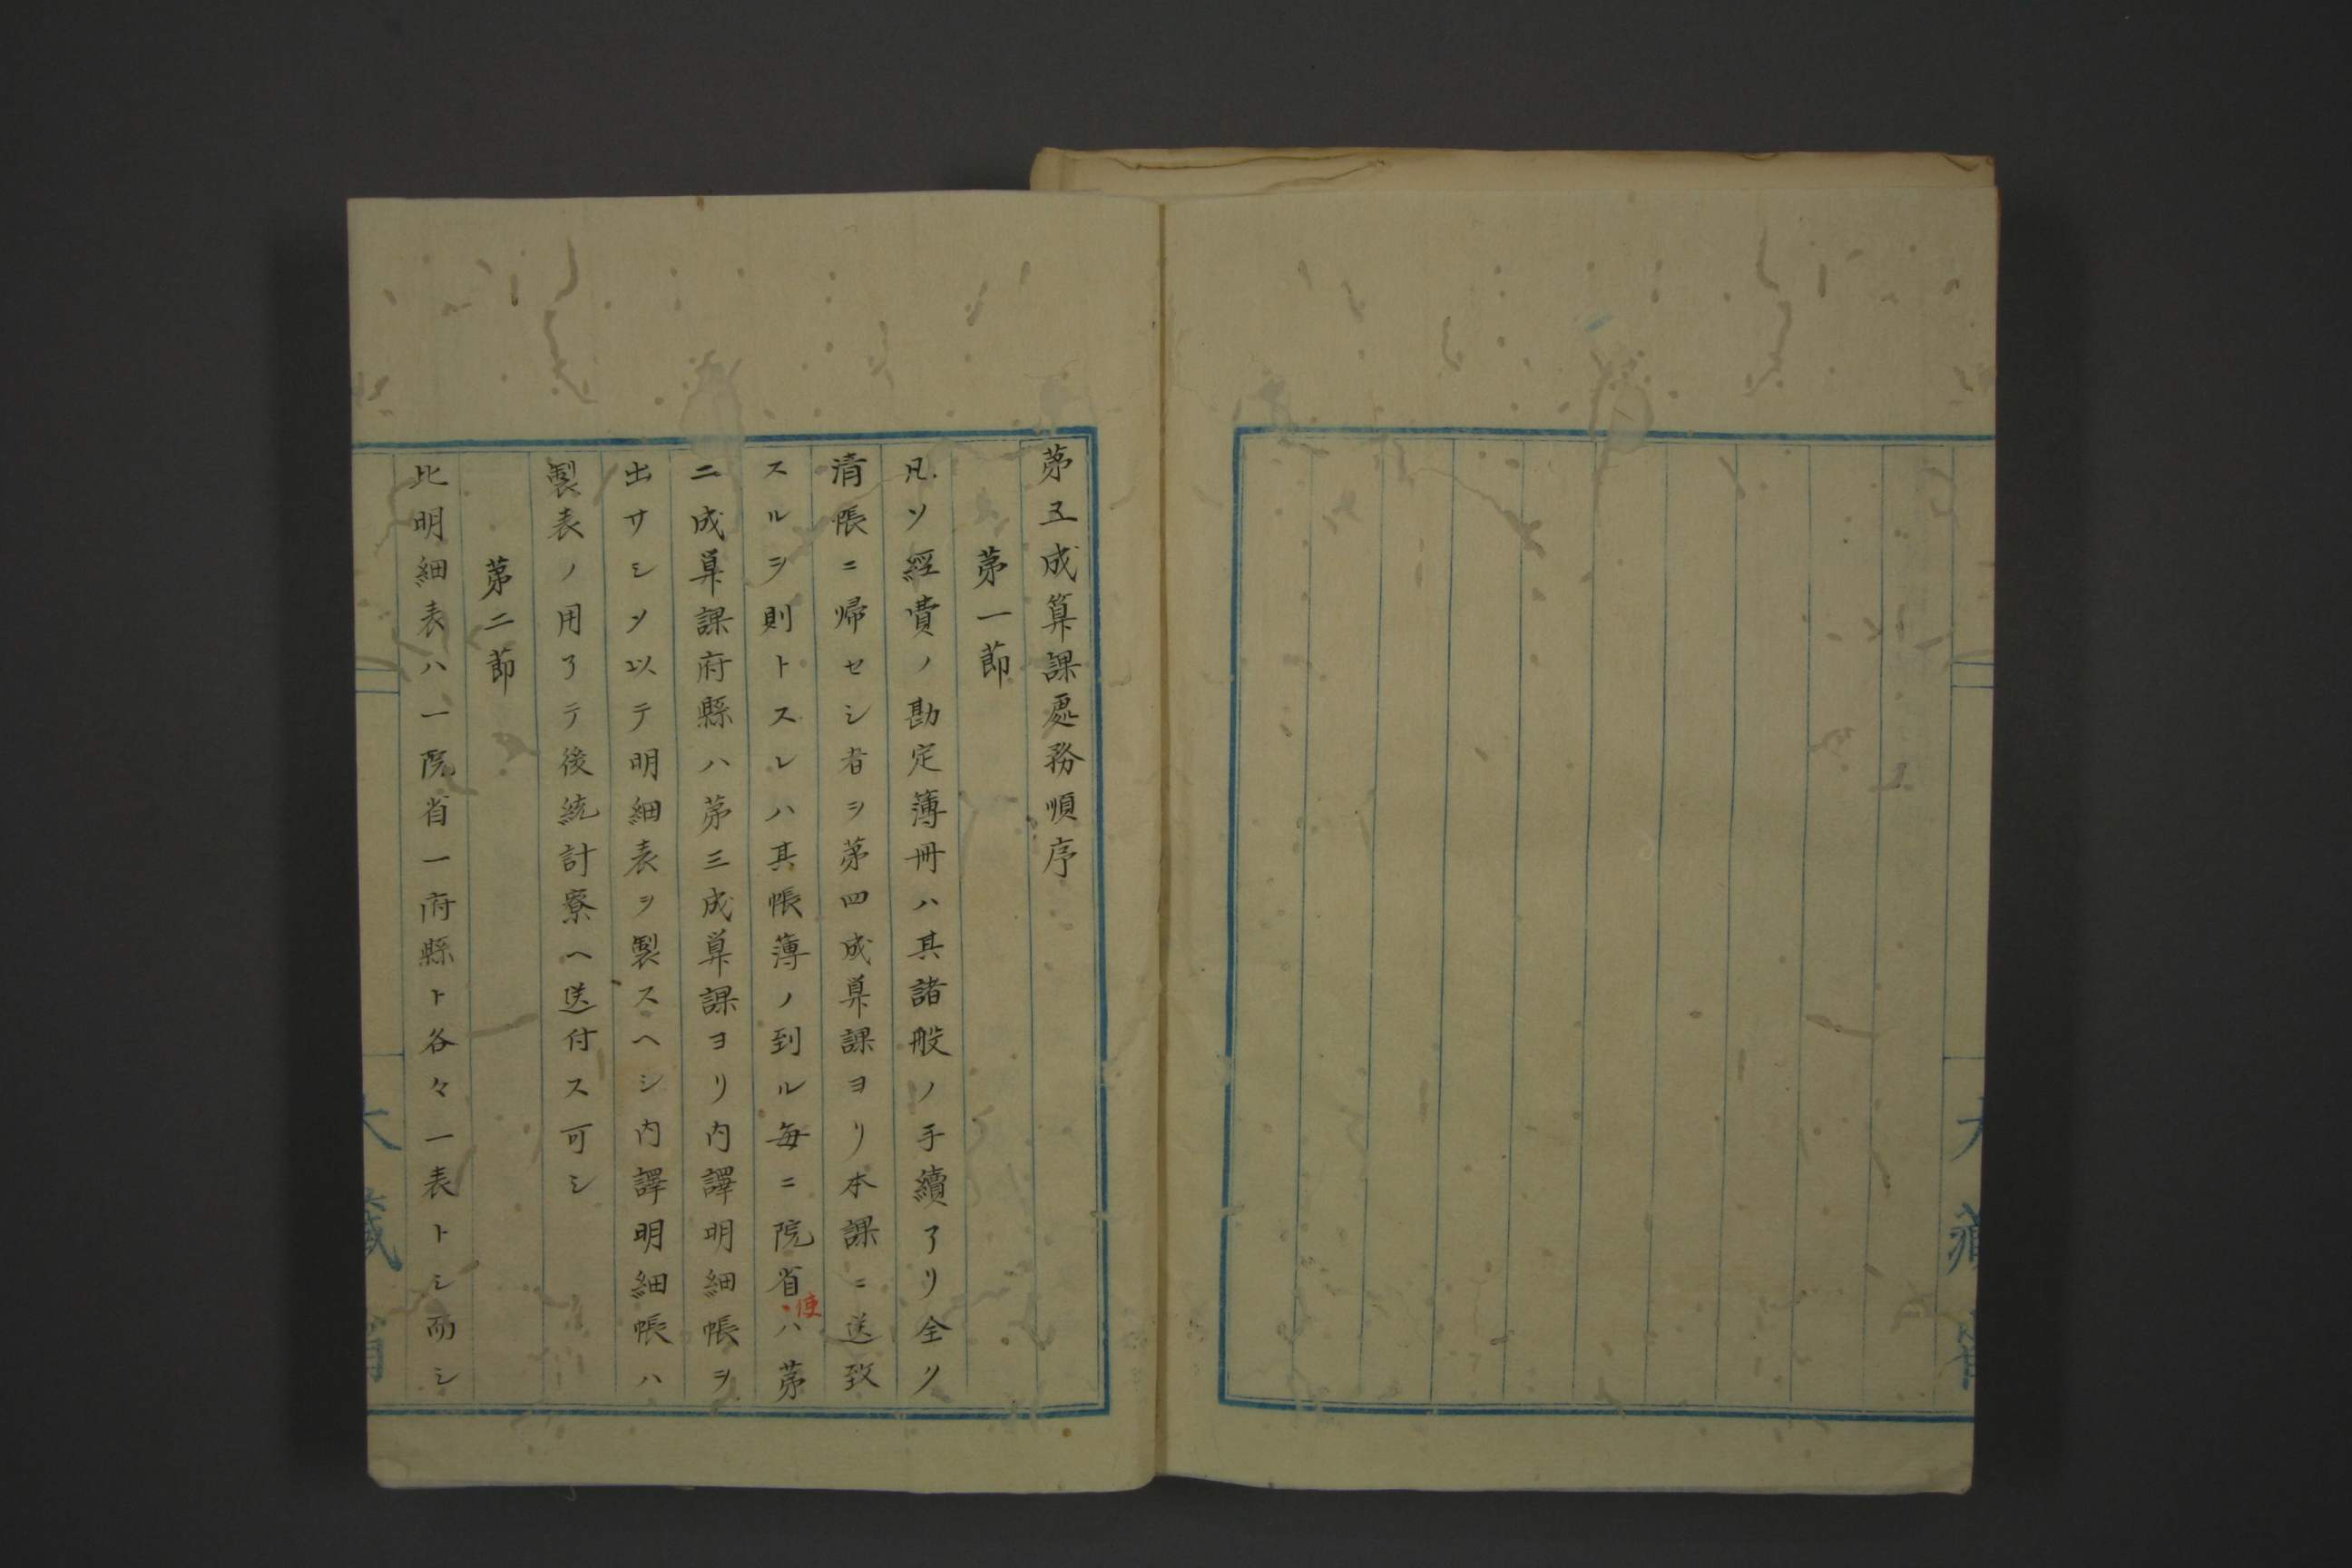 第五成算課處務順序
第一節
凡ソ經費ノ勘定簿冊ハ其諸般ノ手續了リ全ク
清帳ニ帰セシ者ヲ第四成算課ヨリ本課ニ送致
スルヲ則トスレハ其帳薄ノ到ル毎ニ院省使ハ第
二成算課府縣ハ第三成算課ヨリ内譯明細帳ヲ
出サシメ以テ明細表ヲ製スヘシ内譯明細帳ハ
製表ノ用了テ後統計寮ヘ送付ス可シ
第二節
此明細表ハ一院省一府縣ト各々一表トシ而シ
大藏省
大藏省